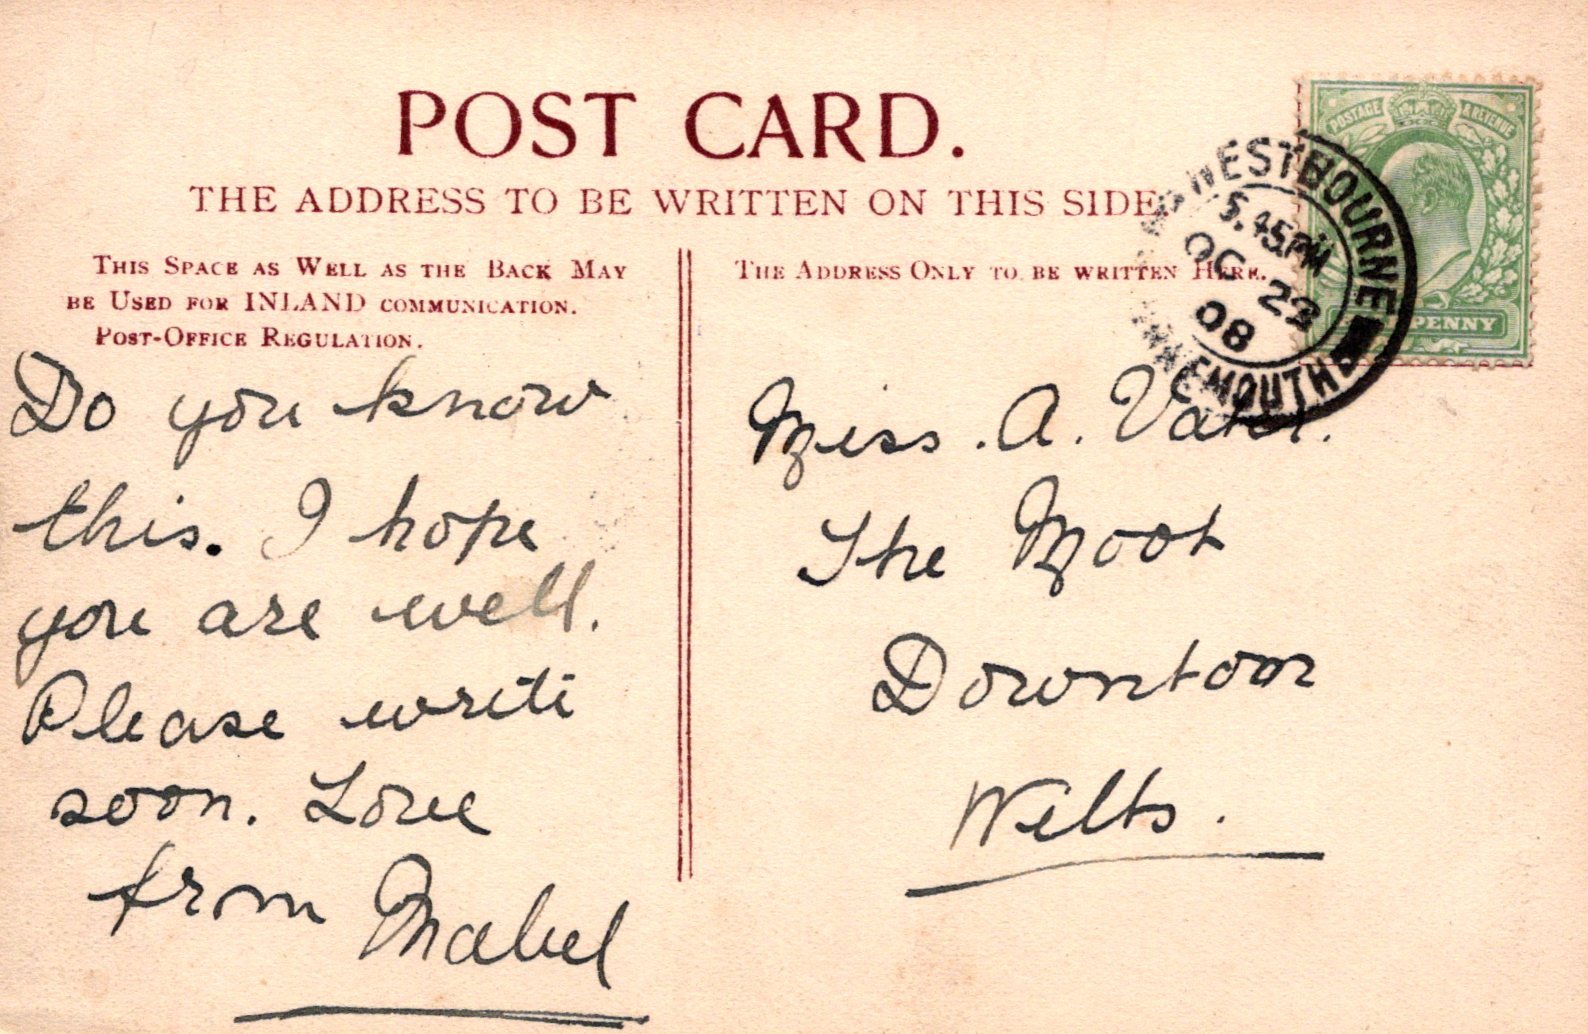 POST CARD.
THE ADDRESS TO BE WRITTEN ON THIS SIDE
THIS SPACE AS WELL AS THE BACK MAY
BE USED FOR INLAND COMMUNICATION.
POST-OFFICE REGULATION.
THE ADDRESS ONLY TO BE WRITTEN HERE.
POSTAGE & REVENUE
PENNY
WESTBOURNE
5.45PM
OC 23
08
EMOUTH
Do you know
this. I hope
you are well.
Please write
soon. Love
from Mabel
Miss. A.
The Moot
Downton
Wilts.